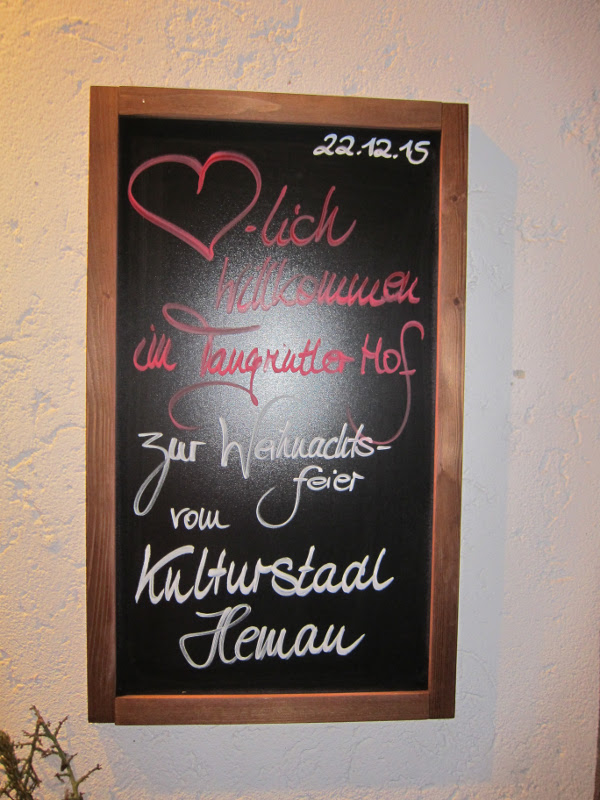 22.12.15
-lich
Willkommen
im Tangrintler Hof
zur Weihnachts-
feier
vom
Kulturstadl
Hemau